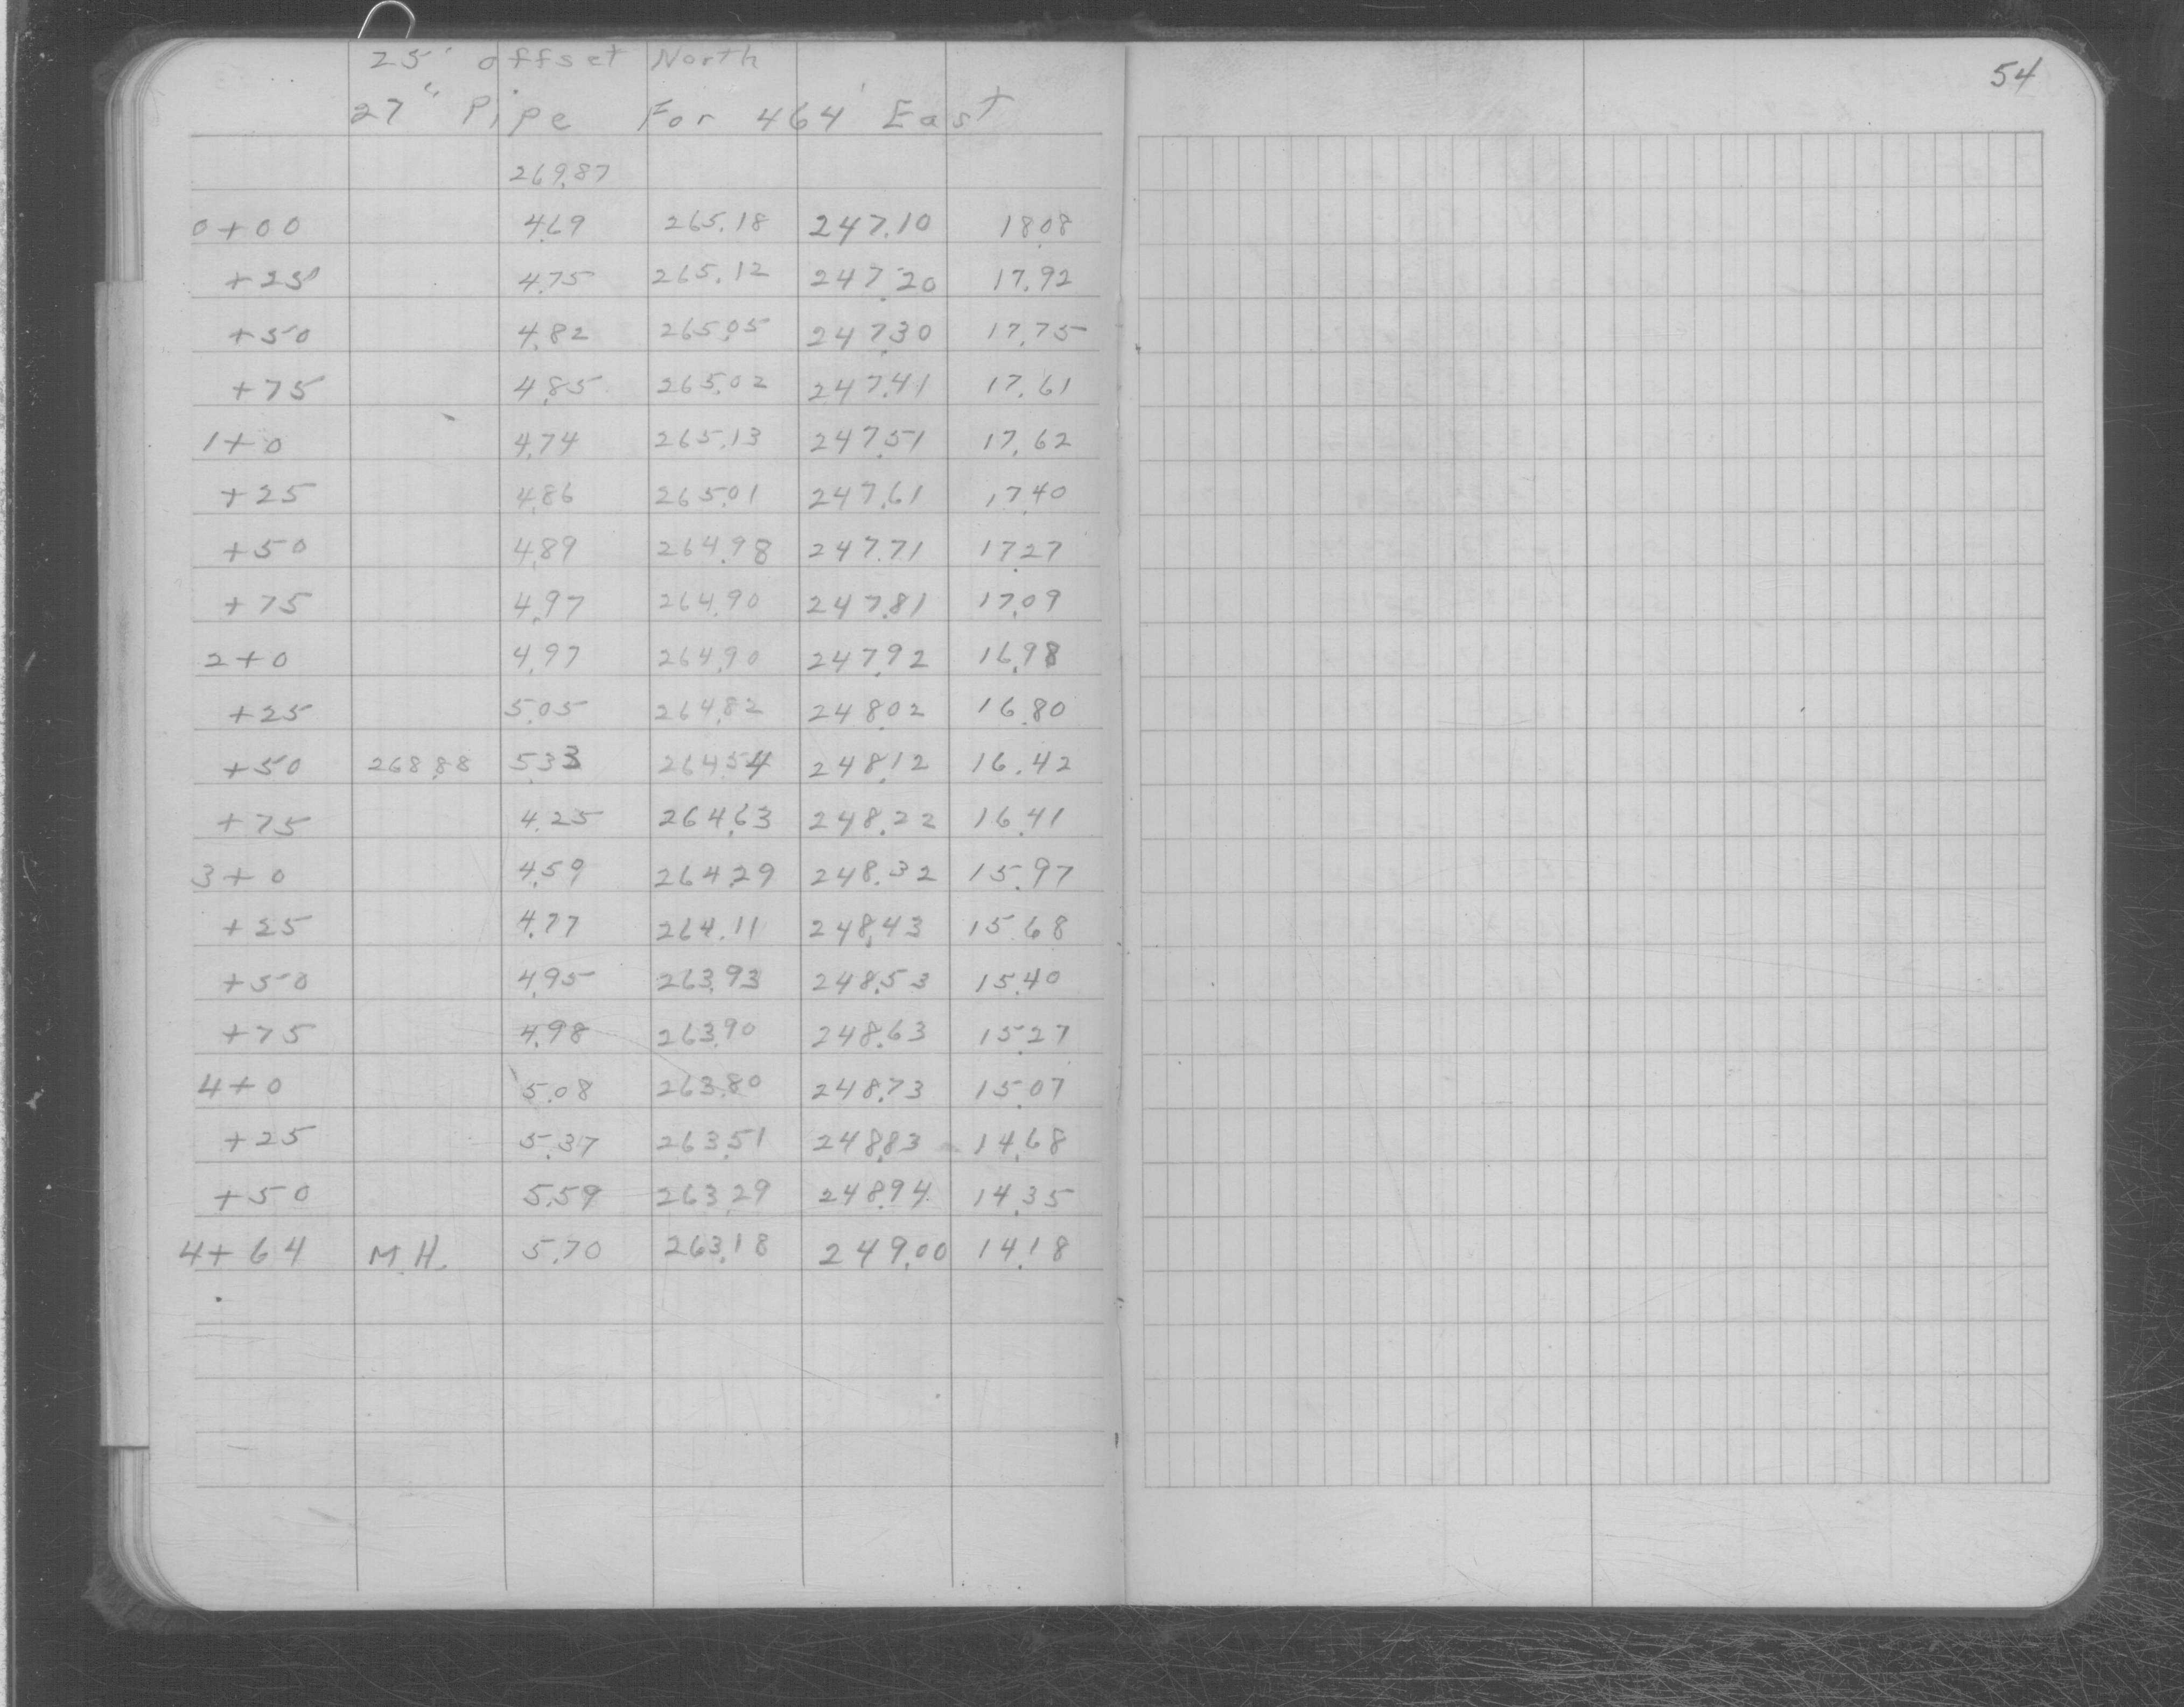 54
25' offset North
27" Pipe For 464' East
269.87
0+00 4.69 265.18 247.10 18.08
+25 4.75 265.12 247.20 17.92
+50 4.82 265.05 247.30 17.75
+75 4.85 265.02 247.41 17.61
1+0 4.74 265.13 247.51 17.62
+25 4.86 265.01 247.61 17.40
+50 4.89 264.98 247.71 17.27
+75 4.97 264.90 247.81 17.09
2+0 4.97 264.90 247.92 16.98
+25 5.05 264.82 248.02 16.80
+50 268.88 5.33 264.54 248.12 16.42
+75 4.25 264.63 248.22 16.41
3+0 4.59 264.29 248.32 15.97
+25 4.77 264.11 248.43 15.68
+50 4.95 263.93 248.53 15.40
+75 4.98 263.90 248.63 15.27
4+0 5.08 263.80 248.73 15.07
+25 5.37 263.51 248.83 14.68
+50 5.59 263.29 248.94 14.35
4+64 M.H. 5.70 263.18 249.00 14.18